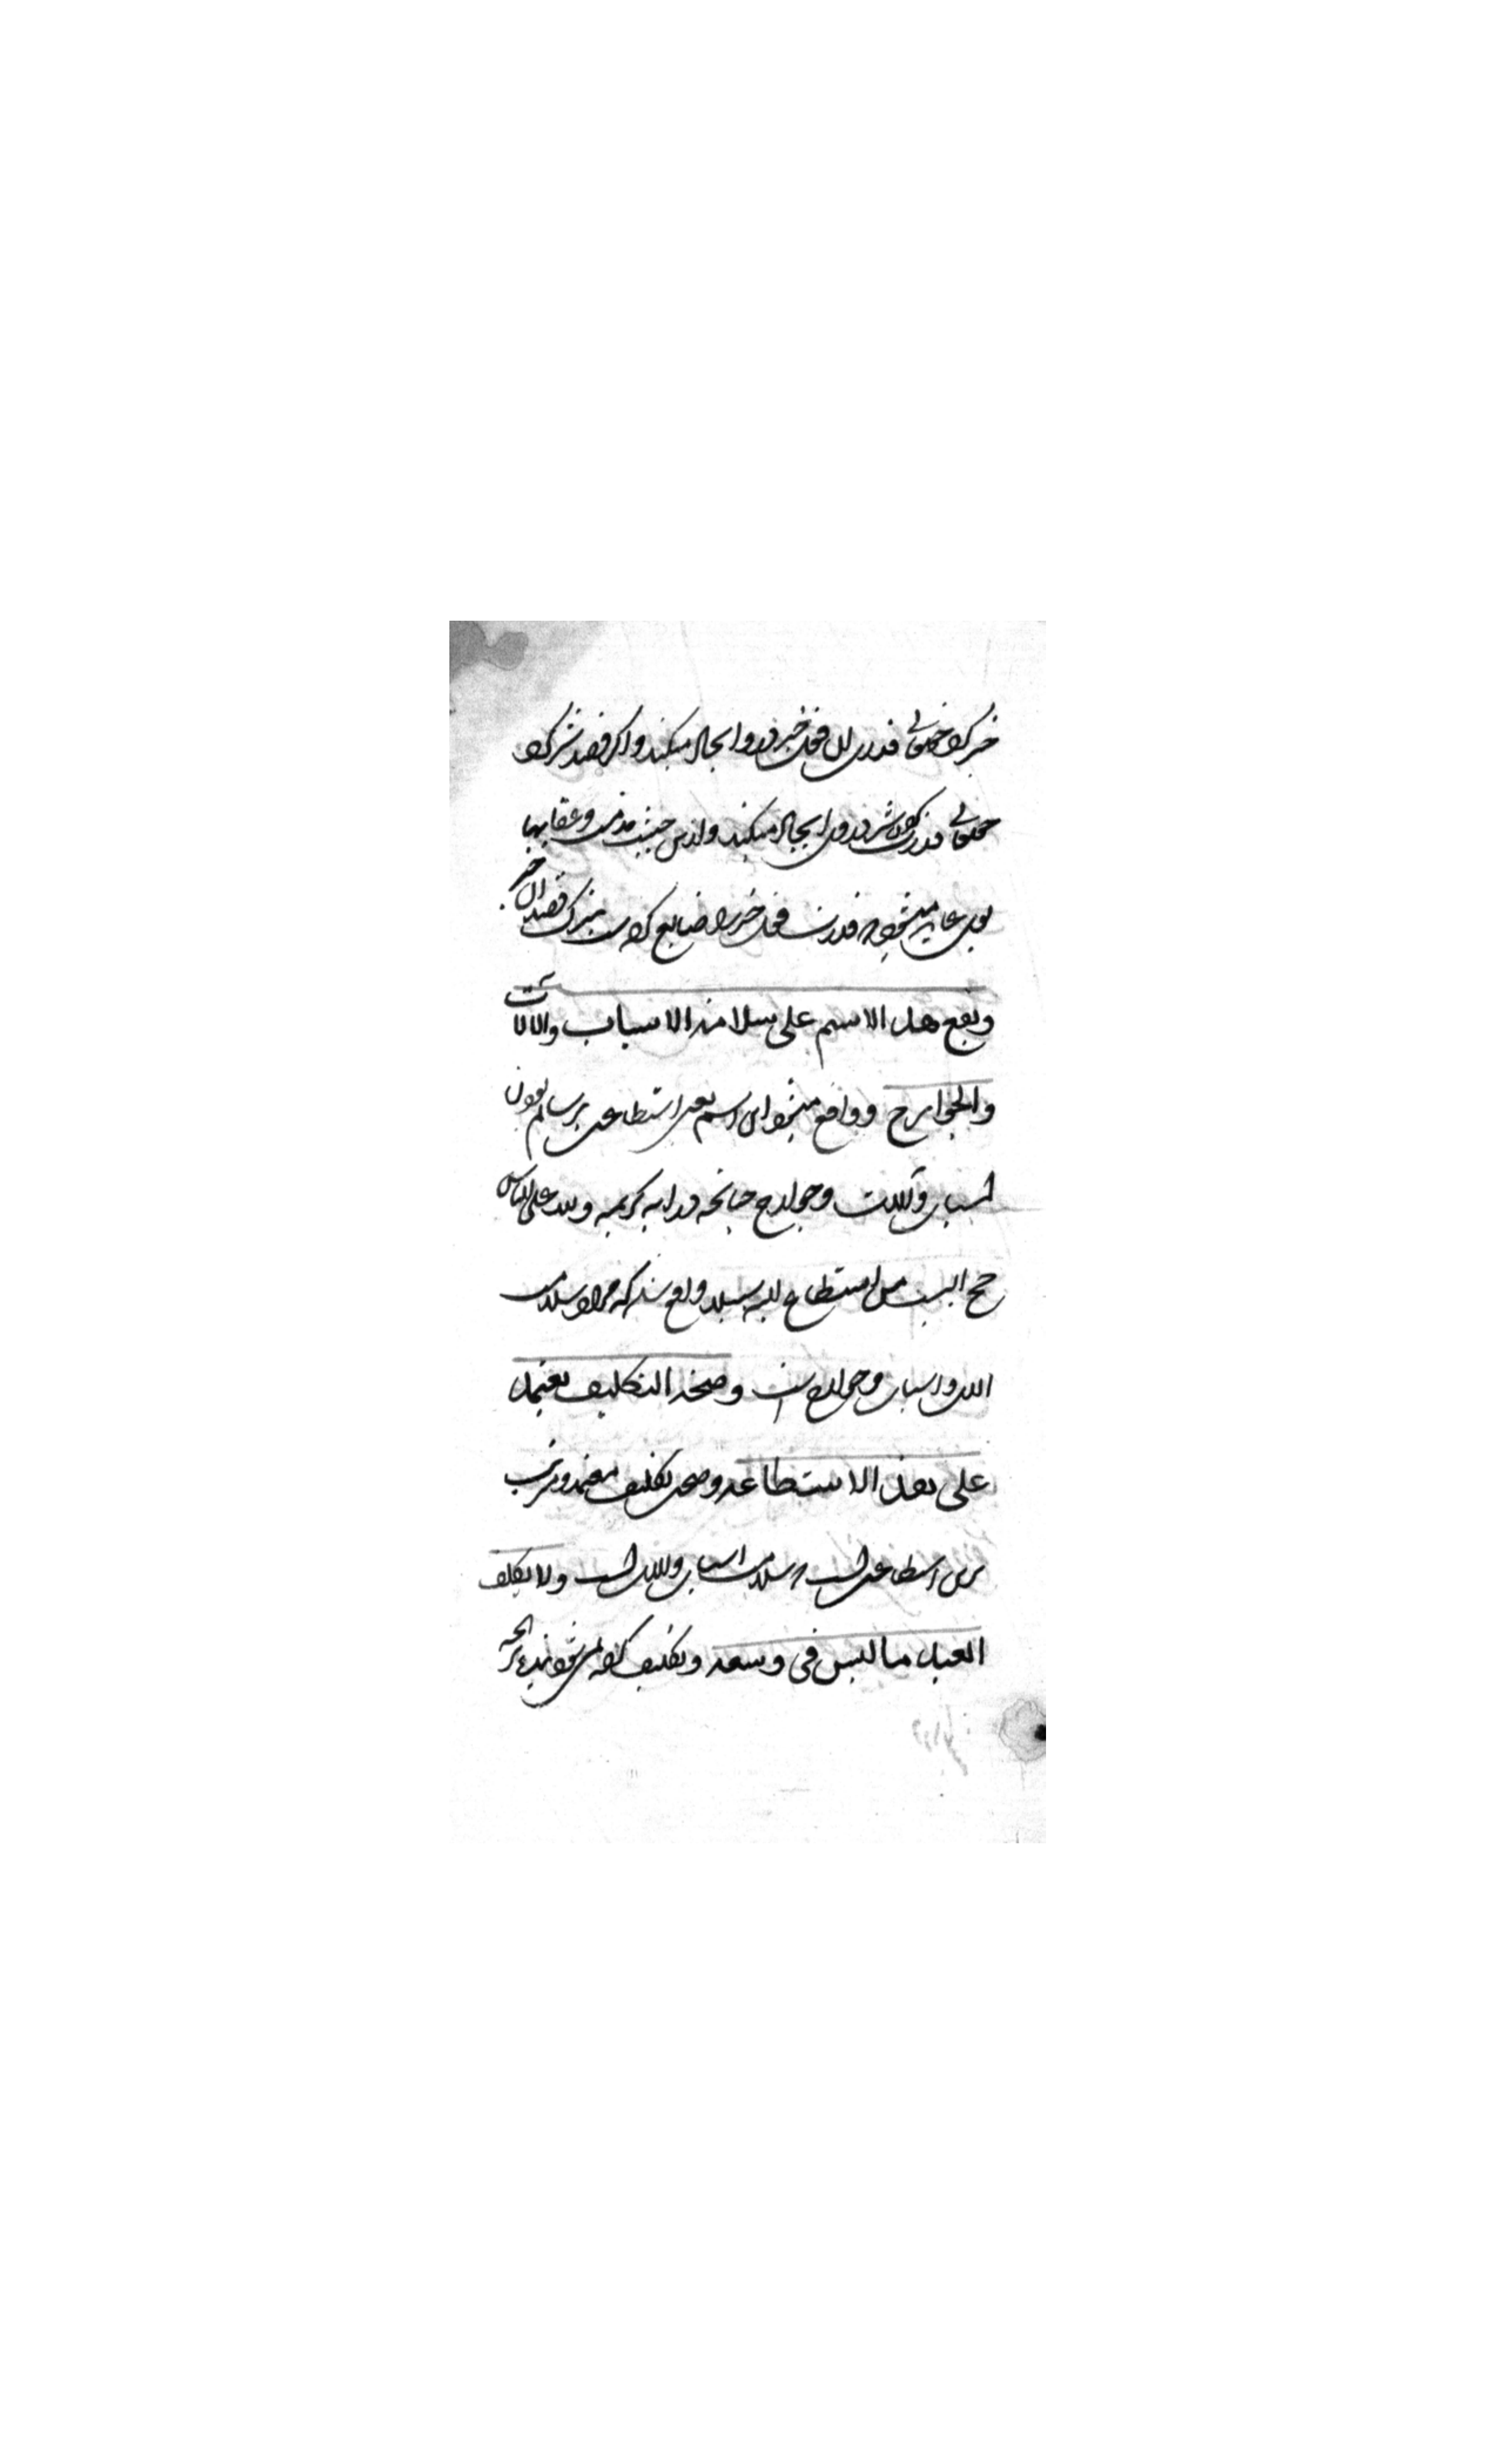 خیر کرد حقتعالی قدرت فعل خیر در وی ایجاد میکند و اگر قصد شر کرد
حقتعالی قدرت شر در وی ایجاد میکند و ازین حیثیت مذمت و عقاب
عاید میشود قدرت فعل خیر را ضایع کرده بترک قصد آن خیر
ویقع هذا الاسم علی سلامة الاسباب والآلات
والجوارح و واقع میشود این اسم یعنی استطاعت بر سالم بودن
اسباب و آلات و جوارح چنانچه در آیه کریمه ولله علی الناس
حج البیت من استطاع الیه سبیلا واقع شد که مراد سلامت
آلات و اسباب و جوارح است وصحة التکلیف تعتمد
علی هذه الاستطاعة و صحت تکلیف معتمد و مترتب
برین استطاعت است سلامت اسباب و آلات است ولا یکلف
العبد ما لیس فی وسعه و تکلیف کرده نمی شود بنده بر آنچه